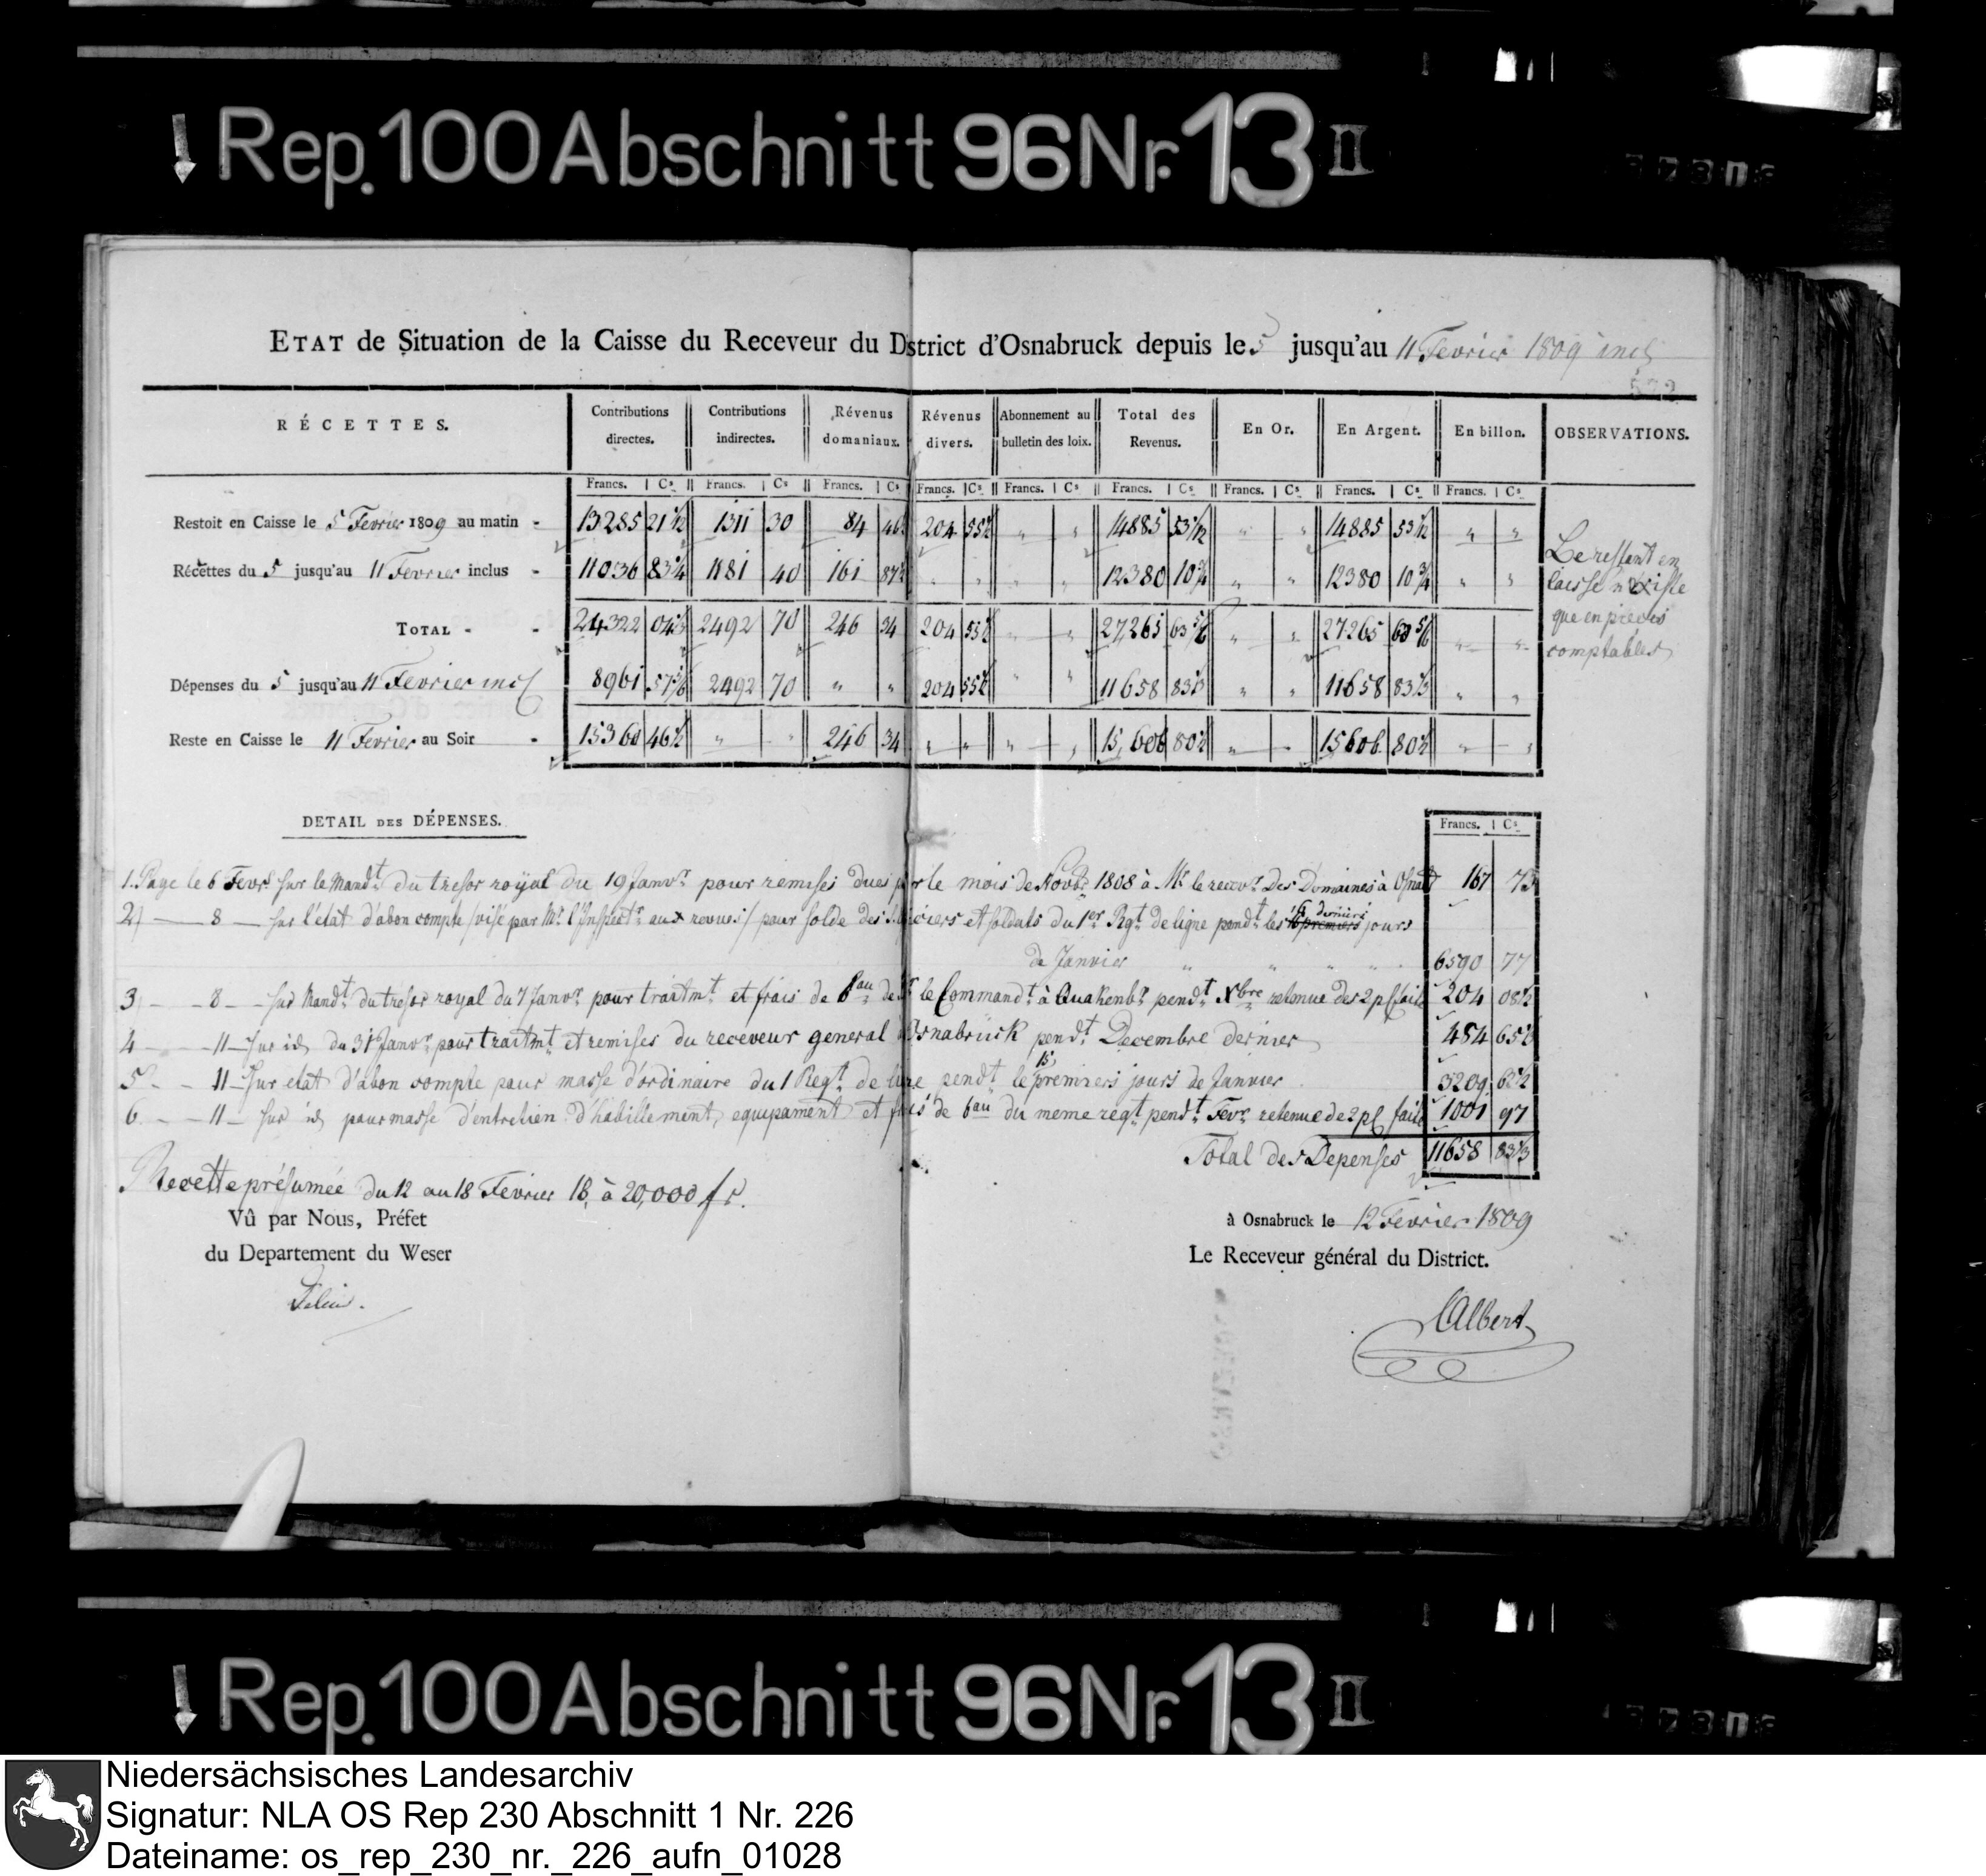 Rep. 100 Abschnitt 96 Nr. 13 II
ETAT de Situation de la Caisse du Receveur du District d'Osnabruck depuis le 5 jusqu'au 11 Fevrier 1809 incl
572
RÉCETTES. Contributions directes. Contributions indirectes. Révenus domaniaux. Révenus divers. Abonnement au bulletin des loix. Total des Revenus. En Or. En Argent. En billon. OBSERVATIONS.
Francs. Cs Francs. Cs Francs. Cs Francs. Cs Francs. Cs Francs. Cs Francs. Cs Francs. Cs Francs. Cs
Restoit en Caisse le 5 Fevrier 1809 au matin - 13285 21 1/2 1311 30 84 204 14885 53 1/12 14885 53 1/12
Récettes du 5 jusqu'au 11 Fevrier inclus - 11036 1181 40 161 12380 10 3/4 12380 10 3/4
TOTAL - - 24322 2492 70 246 34 204 27,265 63 5/6 27265 63 5/6
Dépenses du 5 jusqu'au 11 Fevrier incl 8961 2492 70 " " 204 11658 83 1/3 11658 83 1/3
Reste en Caisse le 11 Fevrier au Soir - 15360 46 1/2 246 34 15,606 80 1/2 15606 80 1/2
Le restant en
Caisse n'existe
que en pieces
comptables
DETAIL DES DÉPENSES.
Francs. Cs
1. Paye le 6 Fevr sur le Mandt du tresor royal du 19 Janvr pour remises dues pr le mois de Novbr 1808 à Mr le recevr des Domaines à Osnabr 167 73
2) — 8 — sur l'etat d'abon compte / visé par Mr l'Inspectr aux revues / pour solde des officiers et soldats du 1er Rgt de ligne pendt les 16 derniers jours
de Janvier " " " " 6590 77
3) — 8 — sur Mandt du tresor royal du 7 Janvr pour traitmt et frais de Bau de Mr le Commandt à Quakenbr pendt Xbre retenue des 2 pC faite 204 08 1/2
4 — 11 — sur id du 31 Janvr pour traitmt et remises du receveur general d'Osnabrück pendt Decembre dernier 484 65
5 — 11 — sur etat d'abon compte pour masse d'ordinaire du 1 Regt de ligne pendt le 15 premiers jours de Janvier 3209 62 1/2
6. — 11 — sur id pour masse d'entretien d'habillement, equipament et frais de bau du meme regt pendt Fevr retenue de 2 pC faite 1001 97
Total des Depenses 11658 83 1/3
Recette présumée du 12 au 18 Fevrier 18, à 20,000 fr.
Vû par Nous, Préfet
du Departement du Weser
à Osnabruck le 12 Fevrier 1809
Le Receveur général du District.
Albert
Rep. 100 Abschnitt 96 Nr. 13 II
Niedersächsisches Landesarchiv
Signatur: NLA OS Rep 230 Abschnitt 1 Nr. 226
Dateiname: os_rep_230_nr._226_aufn_01028